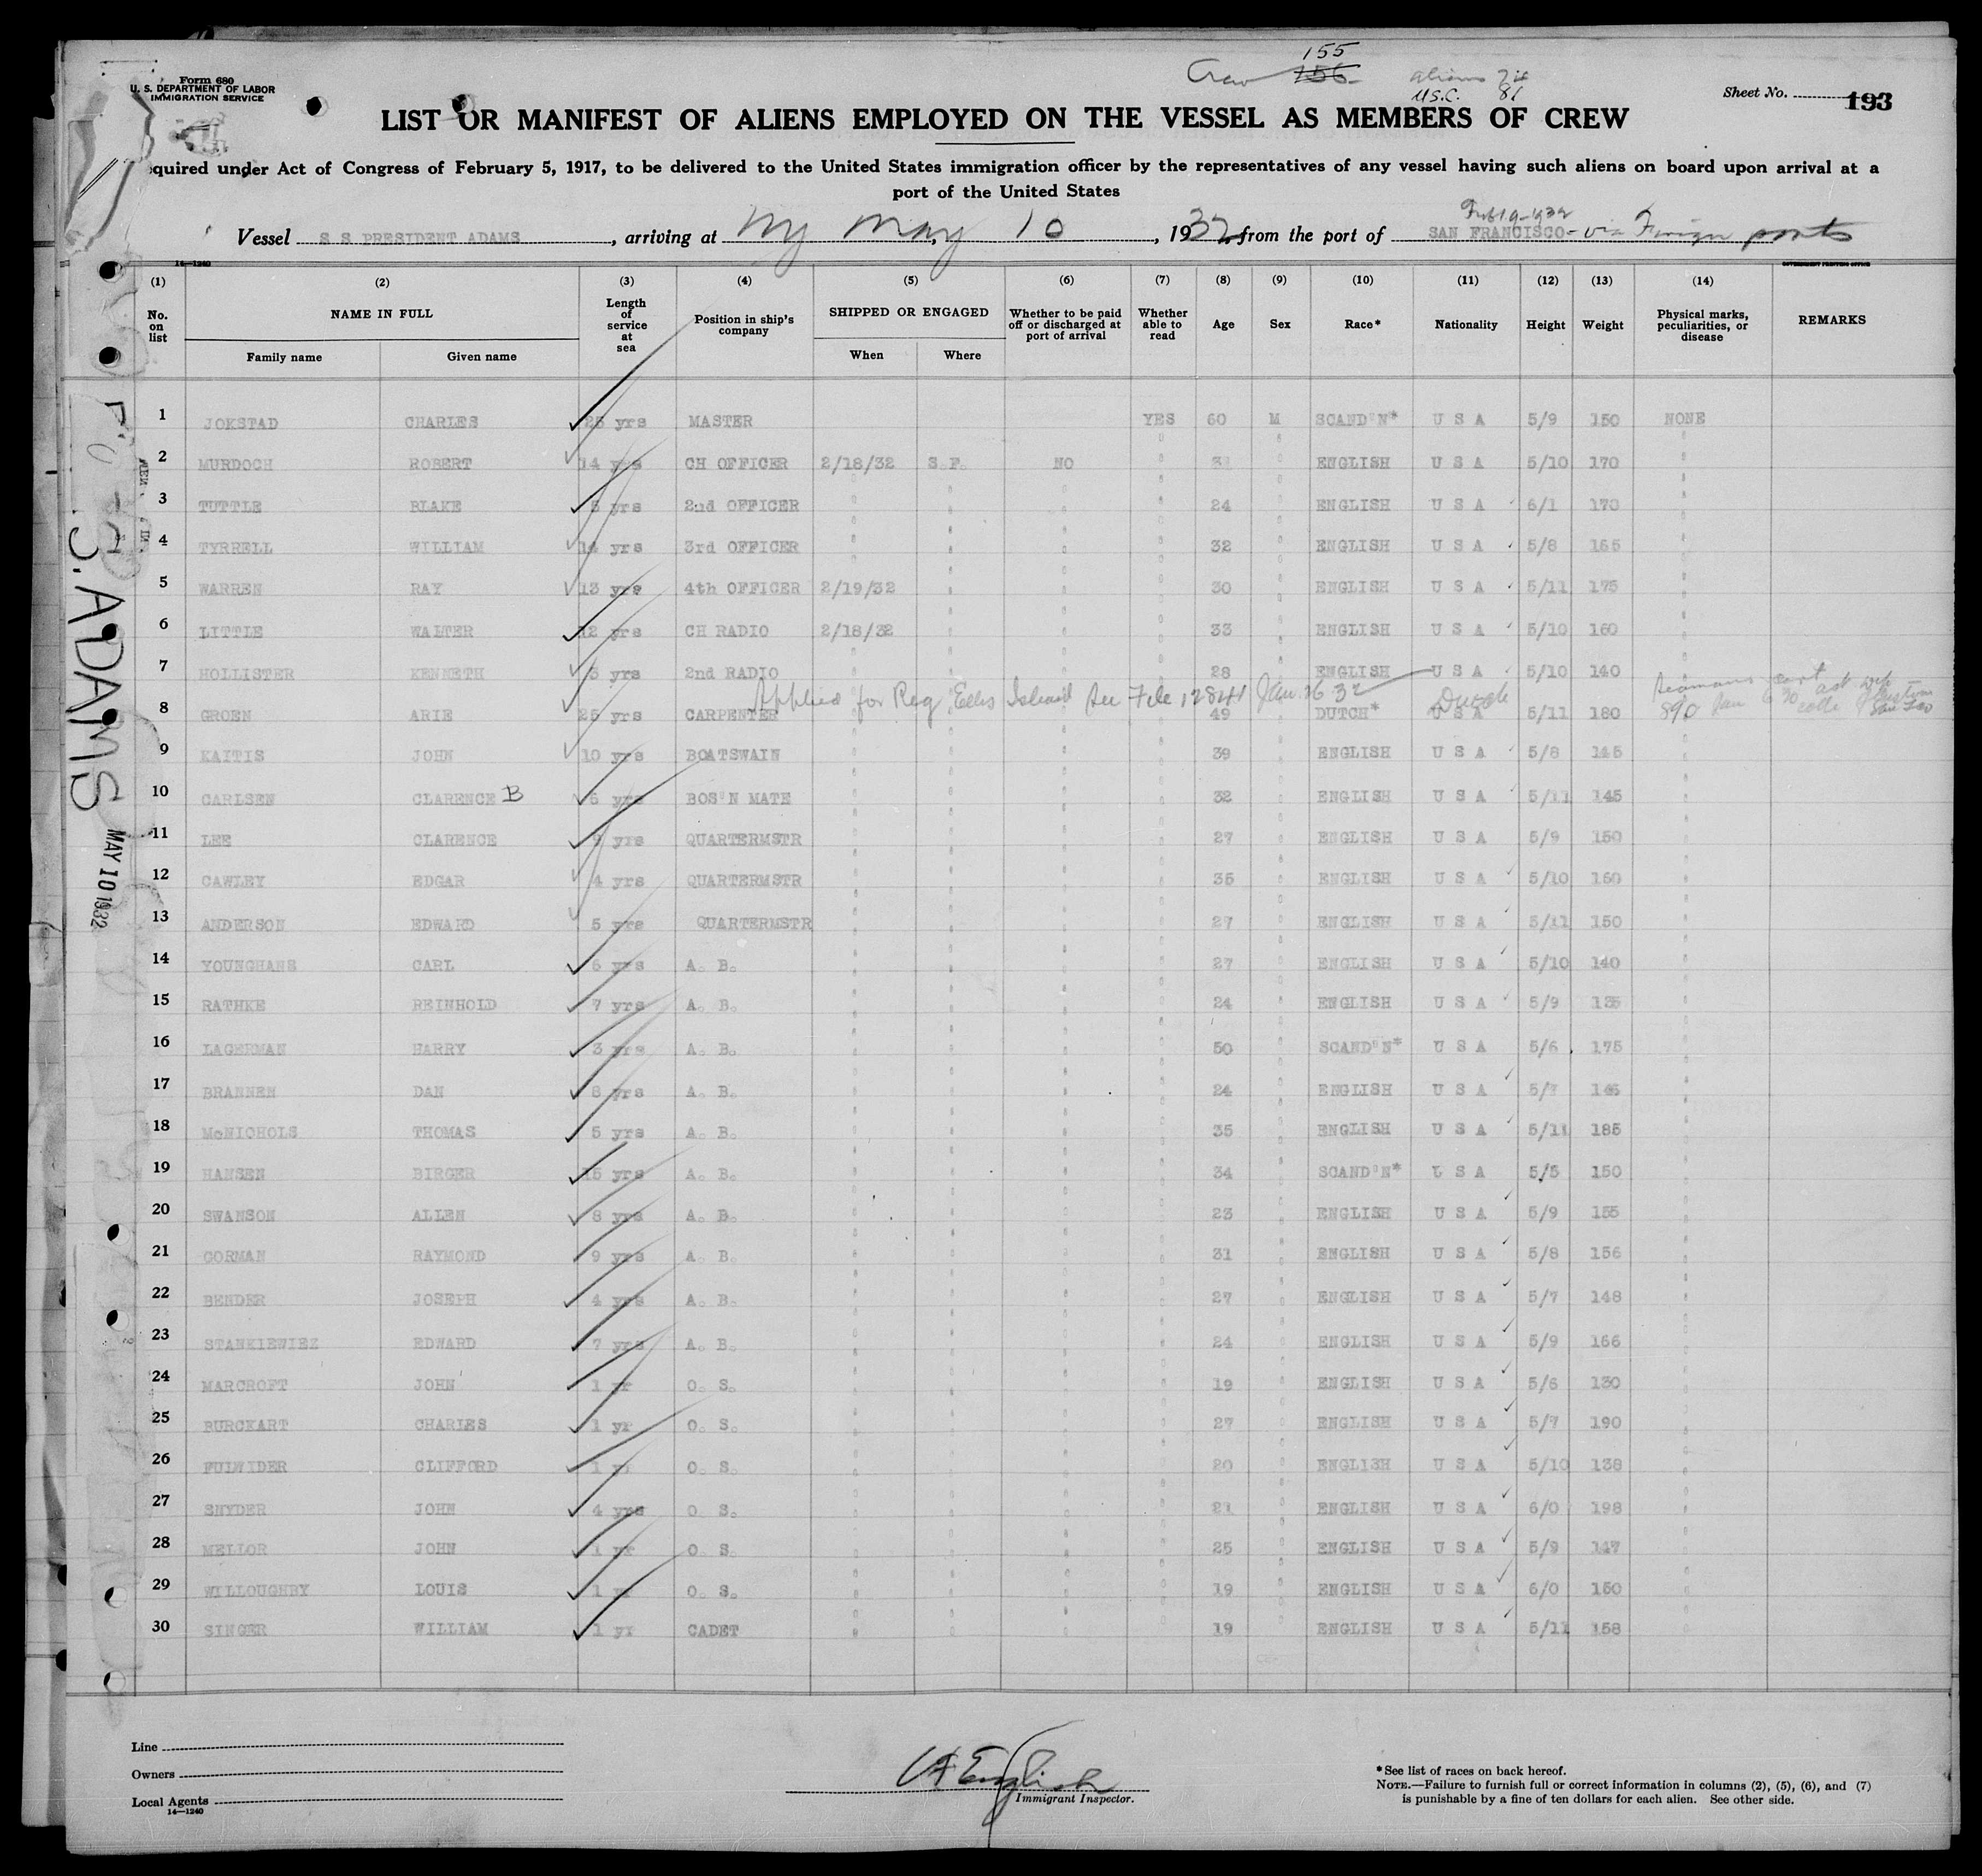 Form 680
U. S. DEPARTMENT OF LABOR
IMMIGRATION SERVICE
155
Crew 156 Aliens 74
U.S.C. 81
Sheet No. 193
LIST OR MANIFEST OF ALIENS EMPLOYED ON THE VESSEL AS MEMBERS OF CREW
equired under Act of Congress of February 5, 1917, to be delivered to the United States immigration officer by the representatives of any vessel having such aliens on board upon arrival at a
port of the United States
Feb 19-1932
Vessel S S PRESIDENT ADAMS, arriving at NY May 10, 1932, from the port of SAN FRANCISCO - via Foreign ports
14—1240 GOVERNMENT PRINTING OFFICE
(1) (2) (3) (4) (5) (6) (7) (8) (9) (10) (11) (12) (13) (14)
No. on list NAME IN FULL Length of service at sea Position in ship's company SHIPPED OR ENGAGED Whether to be paid off or discharged at port of arrival Whether able to read Age Sex Race* Nationality Height Weight Physical marks, peculiarities, or disease REMARKS
Family name Given name When Where
1 JOKSTAD CHARLES 25 yrs MASTER YES 60 M SCAND'N* U S A 5/9 150 NONE
2 MURDOCH ROBERT 14 yrs CH OFFICER 2/18/32 S.F. NO " 31 " ENGLISH U S A 5/10 170 "
3 TUTTLE BLAKE 5 yrs 2nd OFFICER " " " " 24 " ENGLISH U S A 6/1 170 "
4 TYRRELL WILLIAM 14 yrs 3rd OFFICER " " " " 32 " ENGLISH U S A 5/8 155 "
5 WARREN RAY 13 yrs 4th OFFICER 2/19/32 " " " 30 " ENGLISH U S A 5/11 175 "
6 LITTLE WALTER 12 yrs CH RADIO 2/18/32 " " " 33 " ENGLISH U S A 5/10 160 "
7 HOLLISTER KENNETH 5 yrs 2nd RADIO " " " " 28 " ENGLISH U S A 5/10 140 "
Applied for Reg Ellis Island See File 12841 Jan. 26 32 Dutch Seamans cert
8 GROEN ARIE 25 yrs CARPENTER " " " " 49 " DUTCH* U S A 5/11 180 890 Jan 6 30
9 KAITIS JOHN 10 yrs BOATSWAIN " " " " 39 " ENGLISH U S A 5/8 145 "
10 CARLSEN CLARENCE B 6 yrs BOS'N MATE " " " " 32 " ENGLISH U S A 5/11 145 "
11 LEE CLARENCE 9 yrs QUARTERMSTR " " " " 27 " ENGLISH U S A 5/9 150 "
12 CAWLEY EDGAR 4 yrs QUARTERMSTR " " " " 35 " ENGLISH U S A 5/10 160 "
13 ANDERSON EDWARD 5 yrs QUARTERMSTR " " " " 27 " ENGLISH U S A 5/11 150 "
14 YOUNGHANS CARL 6 yrs A. B. " " " " 27 " ENGLISH U S A 5/10 140 "
15 RATHKE REINHOLD 7 yrs A. B. " " " " 24 " ENGLISH U S A 5/9 135 "
16 LAGERMAN HARRY 3 yrs A. B. " " " " 50 " SCAND'N* U S A 5/6 175 "
17 BRANNEN DAN 8 yrs A. B. " " " " 24 " ENGLISH U S A 5/7 145 "
18 McNICHOLS THOMAS 5 yrs A. B. " " " " 35 " ENGLISH U S A 5/11 185 "
19 HANSEN BIRGER 15 yrs A. B. " " " " 34 " SCAND'N* U S A 5/5 150 "
20 SWANSON ALLEN 8 yrs A. B. " " " " 23 " ENGLISH U S A 5/9 155 "
21 GORMAN RAYMOND 9 yrs A. B. " " " " 31 " ENGLISH U S A 5/8 156 "
22 BENDER JOSEPH 4 yrs A. B. " " " " 27 " ENGLISH U S A 5/7 148 "
23 STANKIEWIEZ EDWARD 7 yrs A. B. " " " " 24 " ENGLISH U S A 5/9 166 "
24 MARCROFT JOHN 1 yr O. S. " " " " 19 " ENGLISH U S A 5/6 130 "
25 BURCKART CHARLES 1 yr O. S. " " " " 27 " ENGLISH U S A 5/7 190 "
26 FULWIDER CLIFFORD 1 yr O. S. " " " " 20 " ENGLISH U S A 5/10 138 "
27 SNYDER JOHN 4 yrs O. S. " " " " 21 " ENGLISH U S A 6/0 198 "
28 MELLOR JOHN 1 yr O. S. " " " " 25 " ENGLISH U S A 5/9 147 "
29 WILLOUGHBY LOUIS 1 yr O. S. " " " " 19 " ENGLISH U S A 6/0 150 "
30 SINGER WILLIAM 1 yr CADET " " " " 19 " ENGLISH U S A 5/11 158 "
S. ADAMS
MAY 10 1932
Line
Owners
Local Agents
14—1240
English
Immigrant Inspector.
*See list of races on back hereof.
NOTE.—Failure to furnish full or correct information in columns (2), (5), (6), and (7)
is punishable by a fine of ten dollars for each alien. See other side.